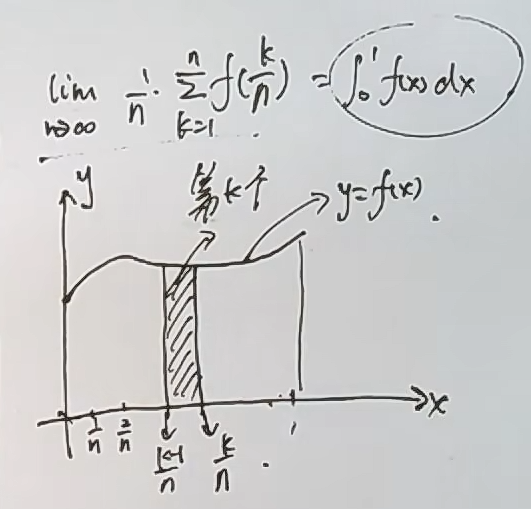 lim n→∞ 1/n · Σ_{k=1}^{n} f(k/n) = ∫₀¹ f(x) dx
y
第k个
y=f(x).
x
1/n 2/n (k-1)/n k/n. 1